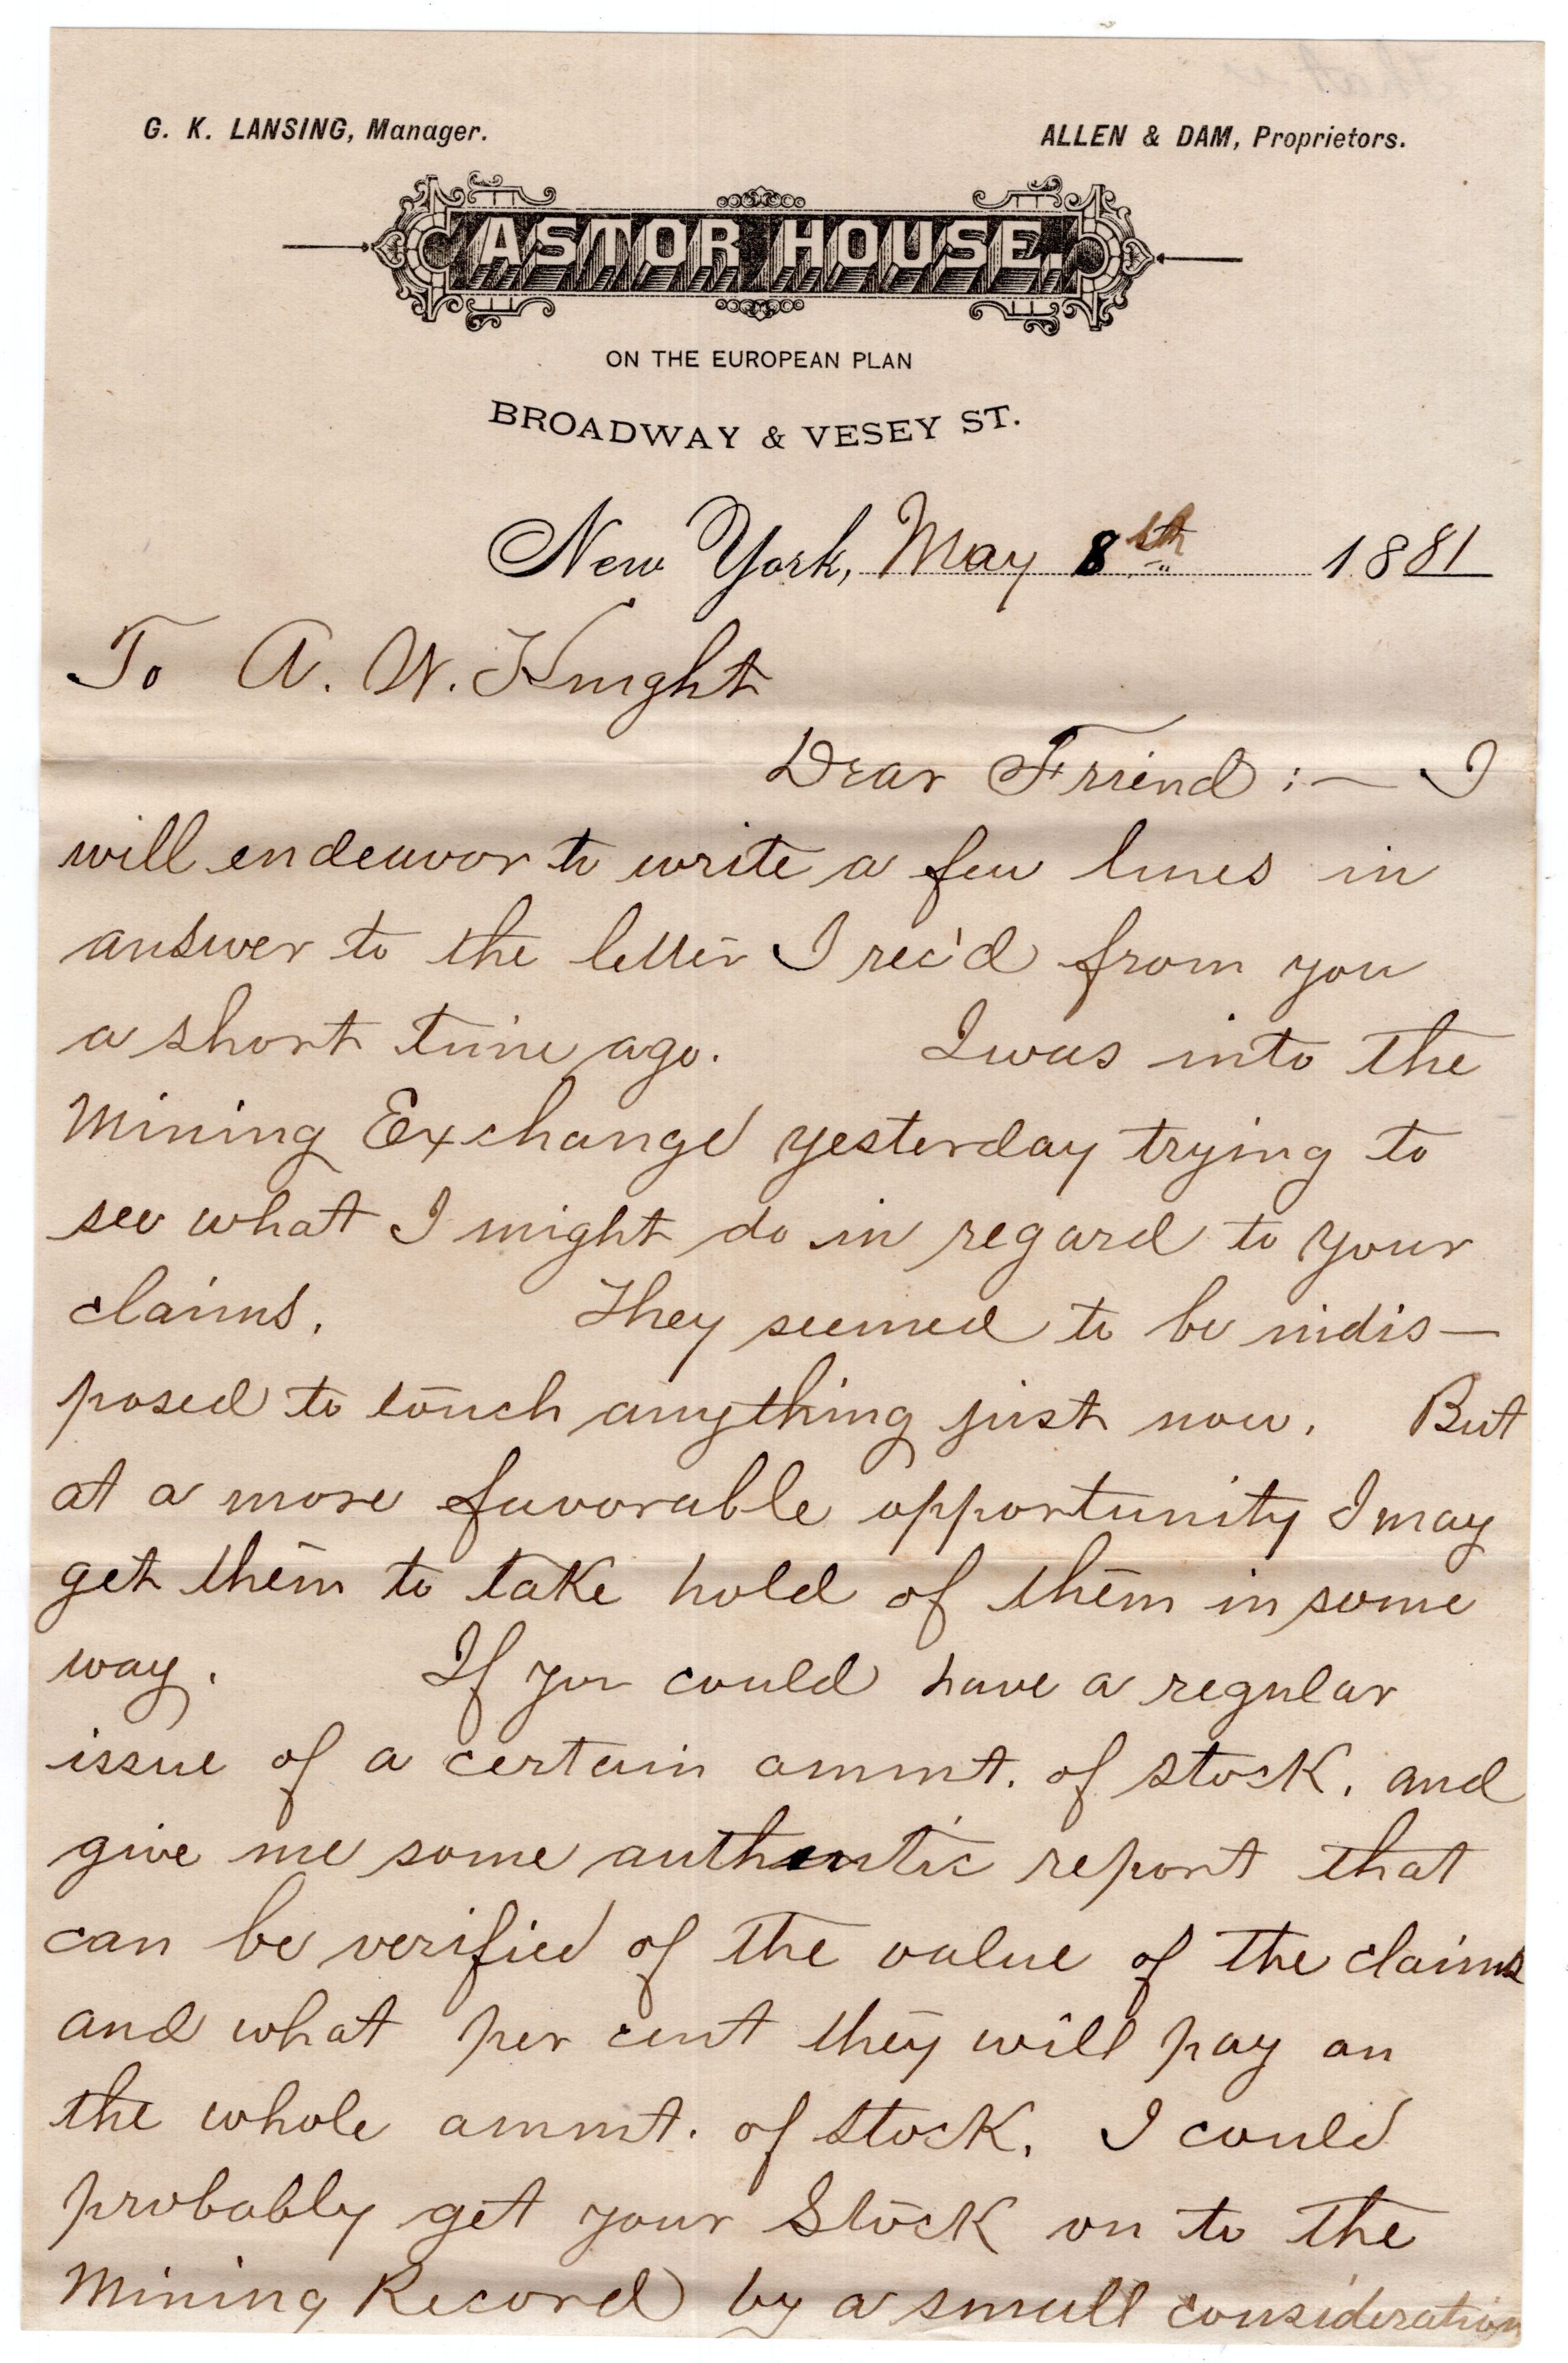 G. K. LANSING, Manager.
ALLEN & DAM, Proprietors.
ASTOR HOUSE.
ON THE EUROPEAN PLAN
BROADWAY & VESEY ST.
New York, May 8th 1881
To A. W. Knight
Dear Friend :— I
will endeavor to write a few lines in
answer to the letter I rec'd from you
a short time ago. I was into the
Mining Exchange yesterday trying to
see what I might do in regard to your
claims. They seemed to be indis—
posed to touch anything just now. But
at a more favorable opportunity I may
get them to take hold of them in some
way. If you could have a regular
issue of a certain ammt. of stock, and
give me some authentic report that
can be verified of the value of the claims
and what per cent they will pay on
the whole ammt. of stock. I could
probably get your Stock on to the
Mining Record by a small consideration